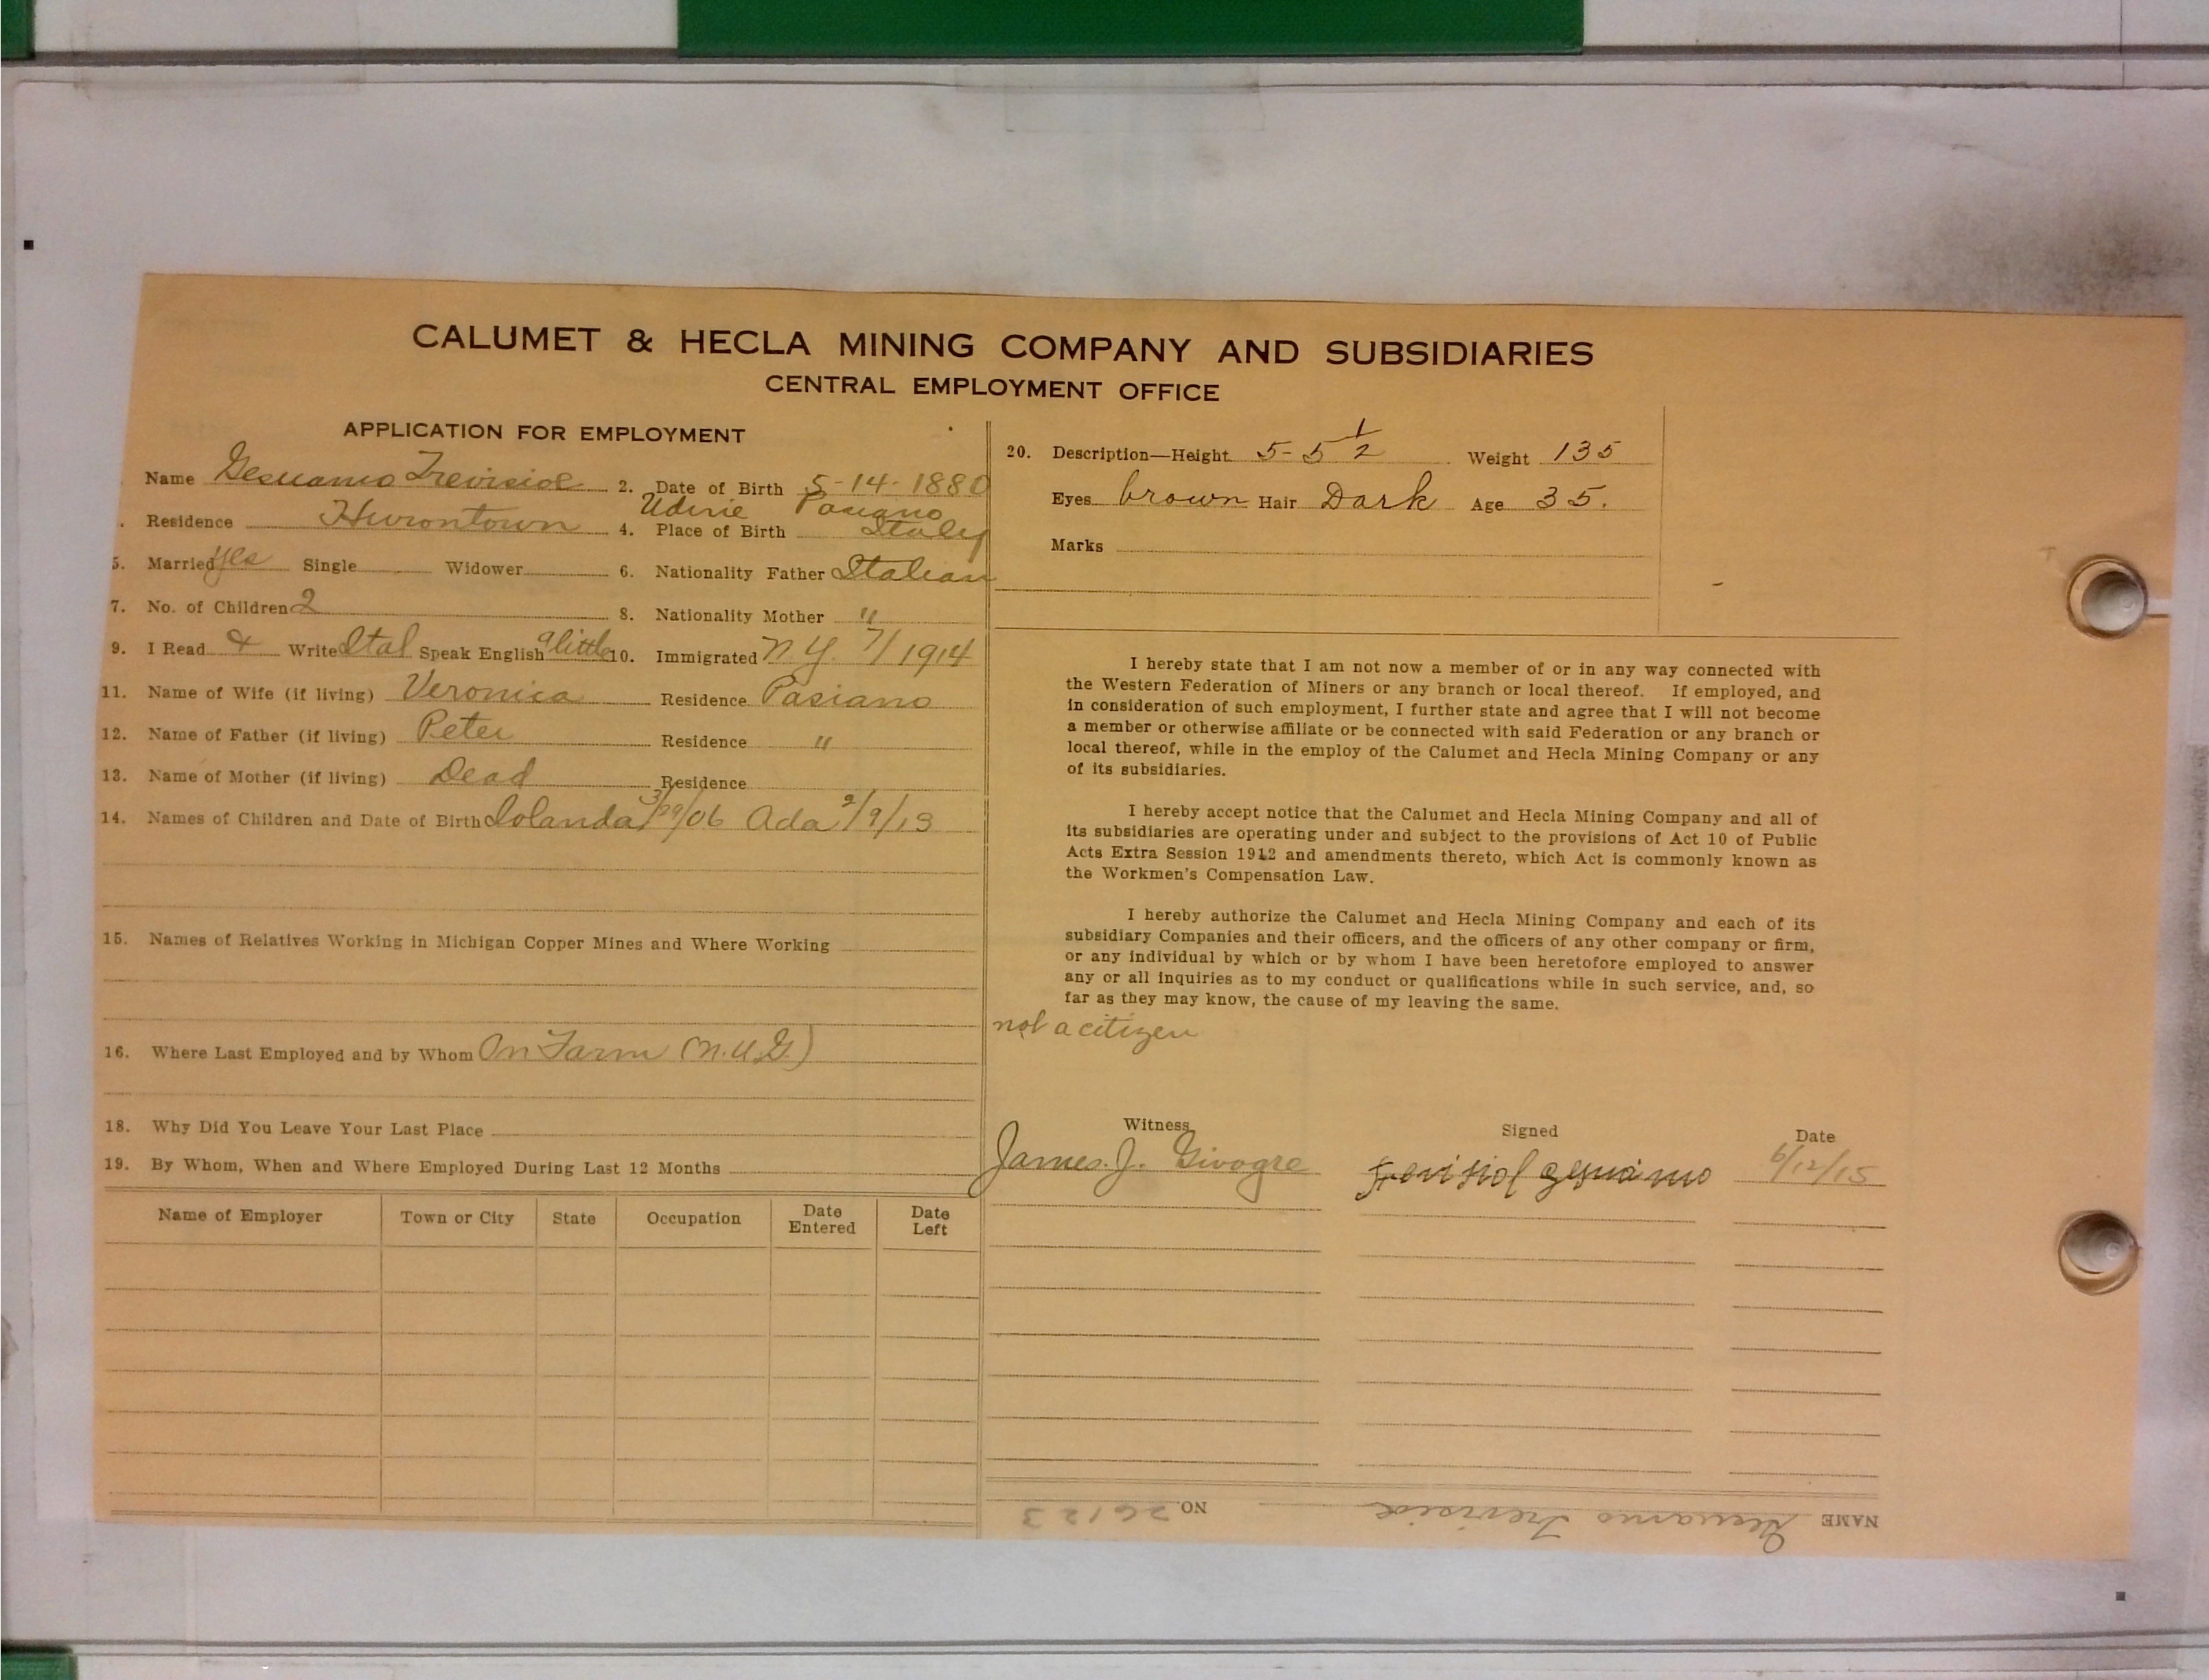 CALUMET & HECLA MINING COMPANY AND SUBSIDIARIES
CENTRAL EMPLOYMENT OFFICE
APPLICATION FOR EMPLOYMENT
Name Gesuamo Trevisiol 2. Date of Birth 5-14-1880
Udine Pasiano
. Residence Hurontown 4. Place of Birth Italy
5. Married yes Single Widower 6. Nationality Father Italian
7. No. of Children 2 8. Nationality Mother "
9. I Read & Write Ital Speak English a little 10. Immigrated N.Y. 7/1914
11. Name of Wife (if living) Veronica Residence Pasiano
12. Name of Father (if living) Peter Residence "
13. Name of Mother (if living) Dead Residence
14. Names of Children and Date of Birth Iolanda 3/29/06 Ada 2/9/13
15. Names of Relatives Working in Michigan Copper Mines and Where Working
16. Where Last Employed and by Whom On Farm (N.U.G.)
18. Why Did You Leave Your Last Place
19. By Whom, When and Where Employed During Last 12 Months
Name of Employer Town or City State Occupation Date Entered Date Left
20. Description—Height 5-5 1/2 Weight 135
Eyes brown Hair Dark Age 35.
Marks
I hereby state that I am not now a member of or in any way connected with
the Western Federation of Miners or any branch or local thereof. If employed, and
in consideration of such employment, I further state and agree that I will not become
a member or otherwise affiliate or be connected with said Federation or any branch or
local thereof, while in the employ of the Calumet and Hecla Mining Company or any
of its subsidiaries.
I hereby accept notice that the Calumet and Hecla Mining Company and all of
its subsidiaries are operating under and subject to the provisions of Act 10 of Public
Acts Extra Session 1912 and amendments thereto, which Act is commonly known as
the Workmen's Compensation Law.
I hereby authorize the Calumet and Hecla Mining Company and each of its
subsidiary Companies and their officers, and the officers of any other company or firm,
or any individual by which or by whom I have been heretofore employed to answer
any or all inquiries as to my conduct or qualifications while in such service, and, so
far as they may know, the cause of my leaving the same.
not a citizen
Witness Signed Date
James J. Givogre trevisiol gesuamo 6/12/15
NAME Gesuamo Trevisiol NO. 26123